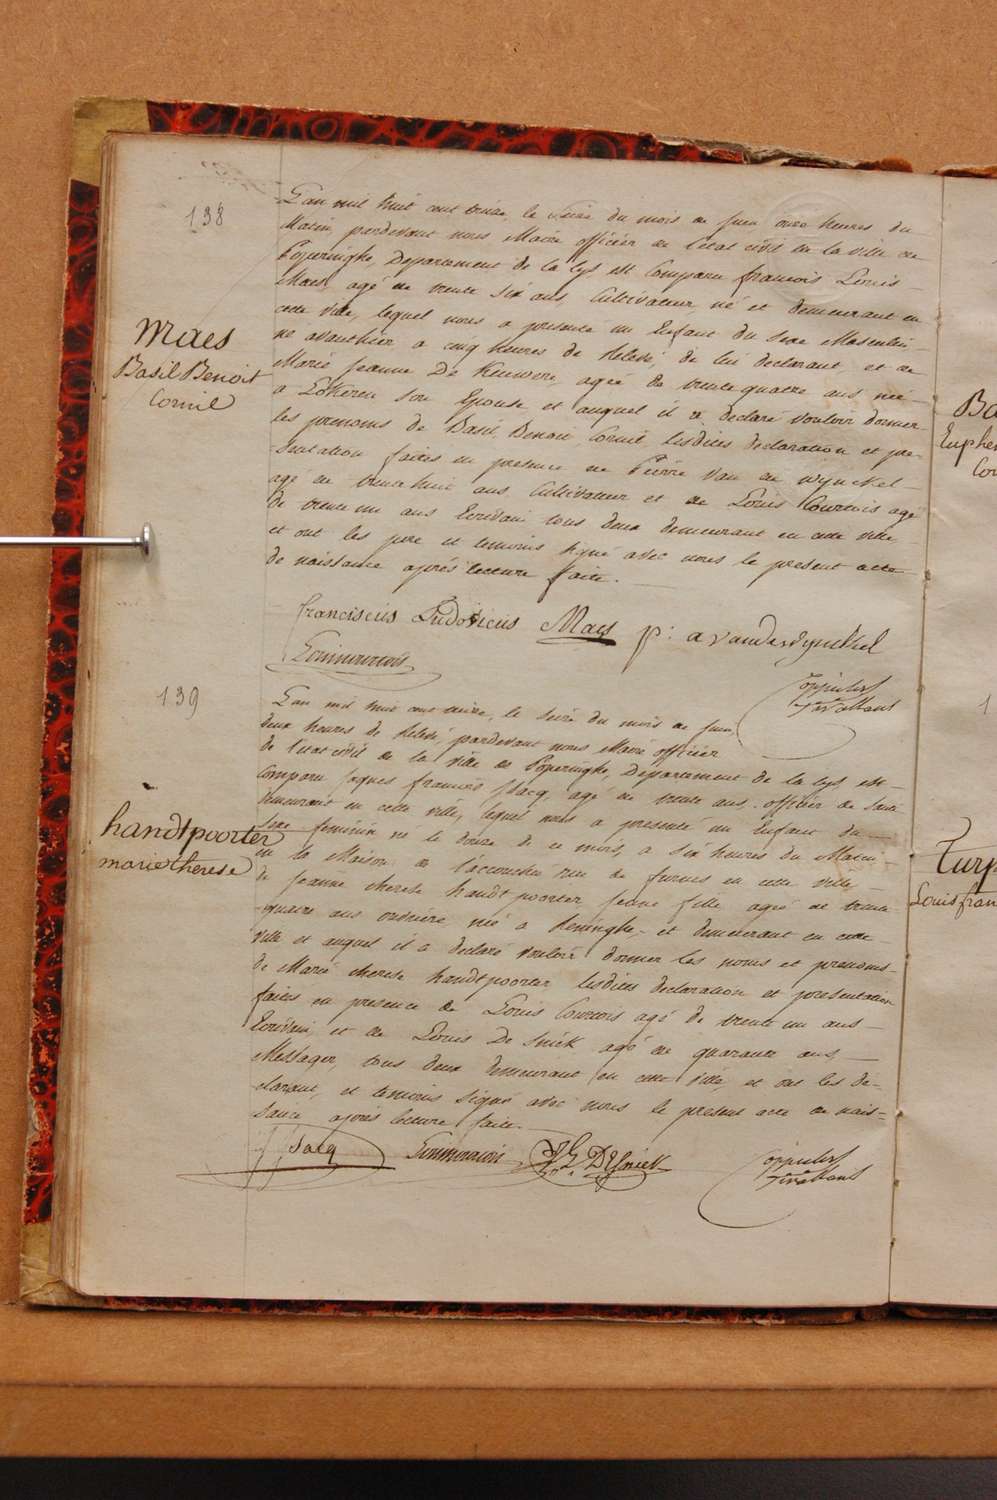 138
L'an mil huit cent treize, le seize du mois de juin onze heures du
Matin, pardevant nous Maire officier de l'etat civil de la ville de
Poperinghe, Departement de la Lys est Comparu francois Louis
Maes, agé de trente six ans Cultivateur, né et demeurant en
cette ville, lequel nous a presenté un Enfant du Sexe Masculin
né avanthier a cinq heures de Relevé, de lui declarant et de
Marie Jeanne De Keuwere, agée de trente quatre ans née
a Lokeren son Epouse et auquel il a declaré vouloir donner
les prenoms de Basil, Benoit Cornil, lesdites declaration et pre-
sentation faites en presence de Pierre Van de Wynckel
agé de trente huit ans Cultivateur et de Louis Courtois agé
de trente un ans Ecrivain tous deux demeurant en cette ville
et ont les pere et temoins signé avec nous le present acte
de naissance aprés lecture faite.
Maes
Basil Benoit
Cornil
franciscus Ludovicus Maes p: a vanderwynckel
139
L'an mil huit cent treize, le seize du mois de juin
deux heures de Relevé, pardevant nous Maire officier
de l'etat civil de la ville de Poperinghe, Departement de la Lys est
Comparu Jaques francois Jsacq, agé de trente ans officier de Santé
demeurant en cette ville, lequel nous a presenté un Enfant du
Sexe feminin né le douze de ce mois, a six heures du Matin
en la Maison de l'accoucheur rue de furnes en cette ville
de Jeanne therese handtpoorter jeune fille agée de trente
quatre ans ordniére née a Reninghe, et demeurant en cette
ville et auquel il a declaré vouloir donner les noms et prenoms
de Marie therese handtpoorter lesdites declaration et presentation
faites en presence de Louis Courtois agé de trente un ans
Ecrivain, et de Louis De Snick agé de quarante ans
Messager, tous deux demeurant en cette ville et ont les de-
clarant, et temoins signé avec nous le present acte de nais=
sance aprés lecture faite.
handtpoorter
marie therese
Jsacq